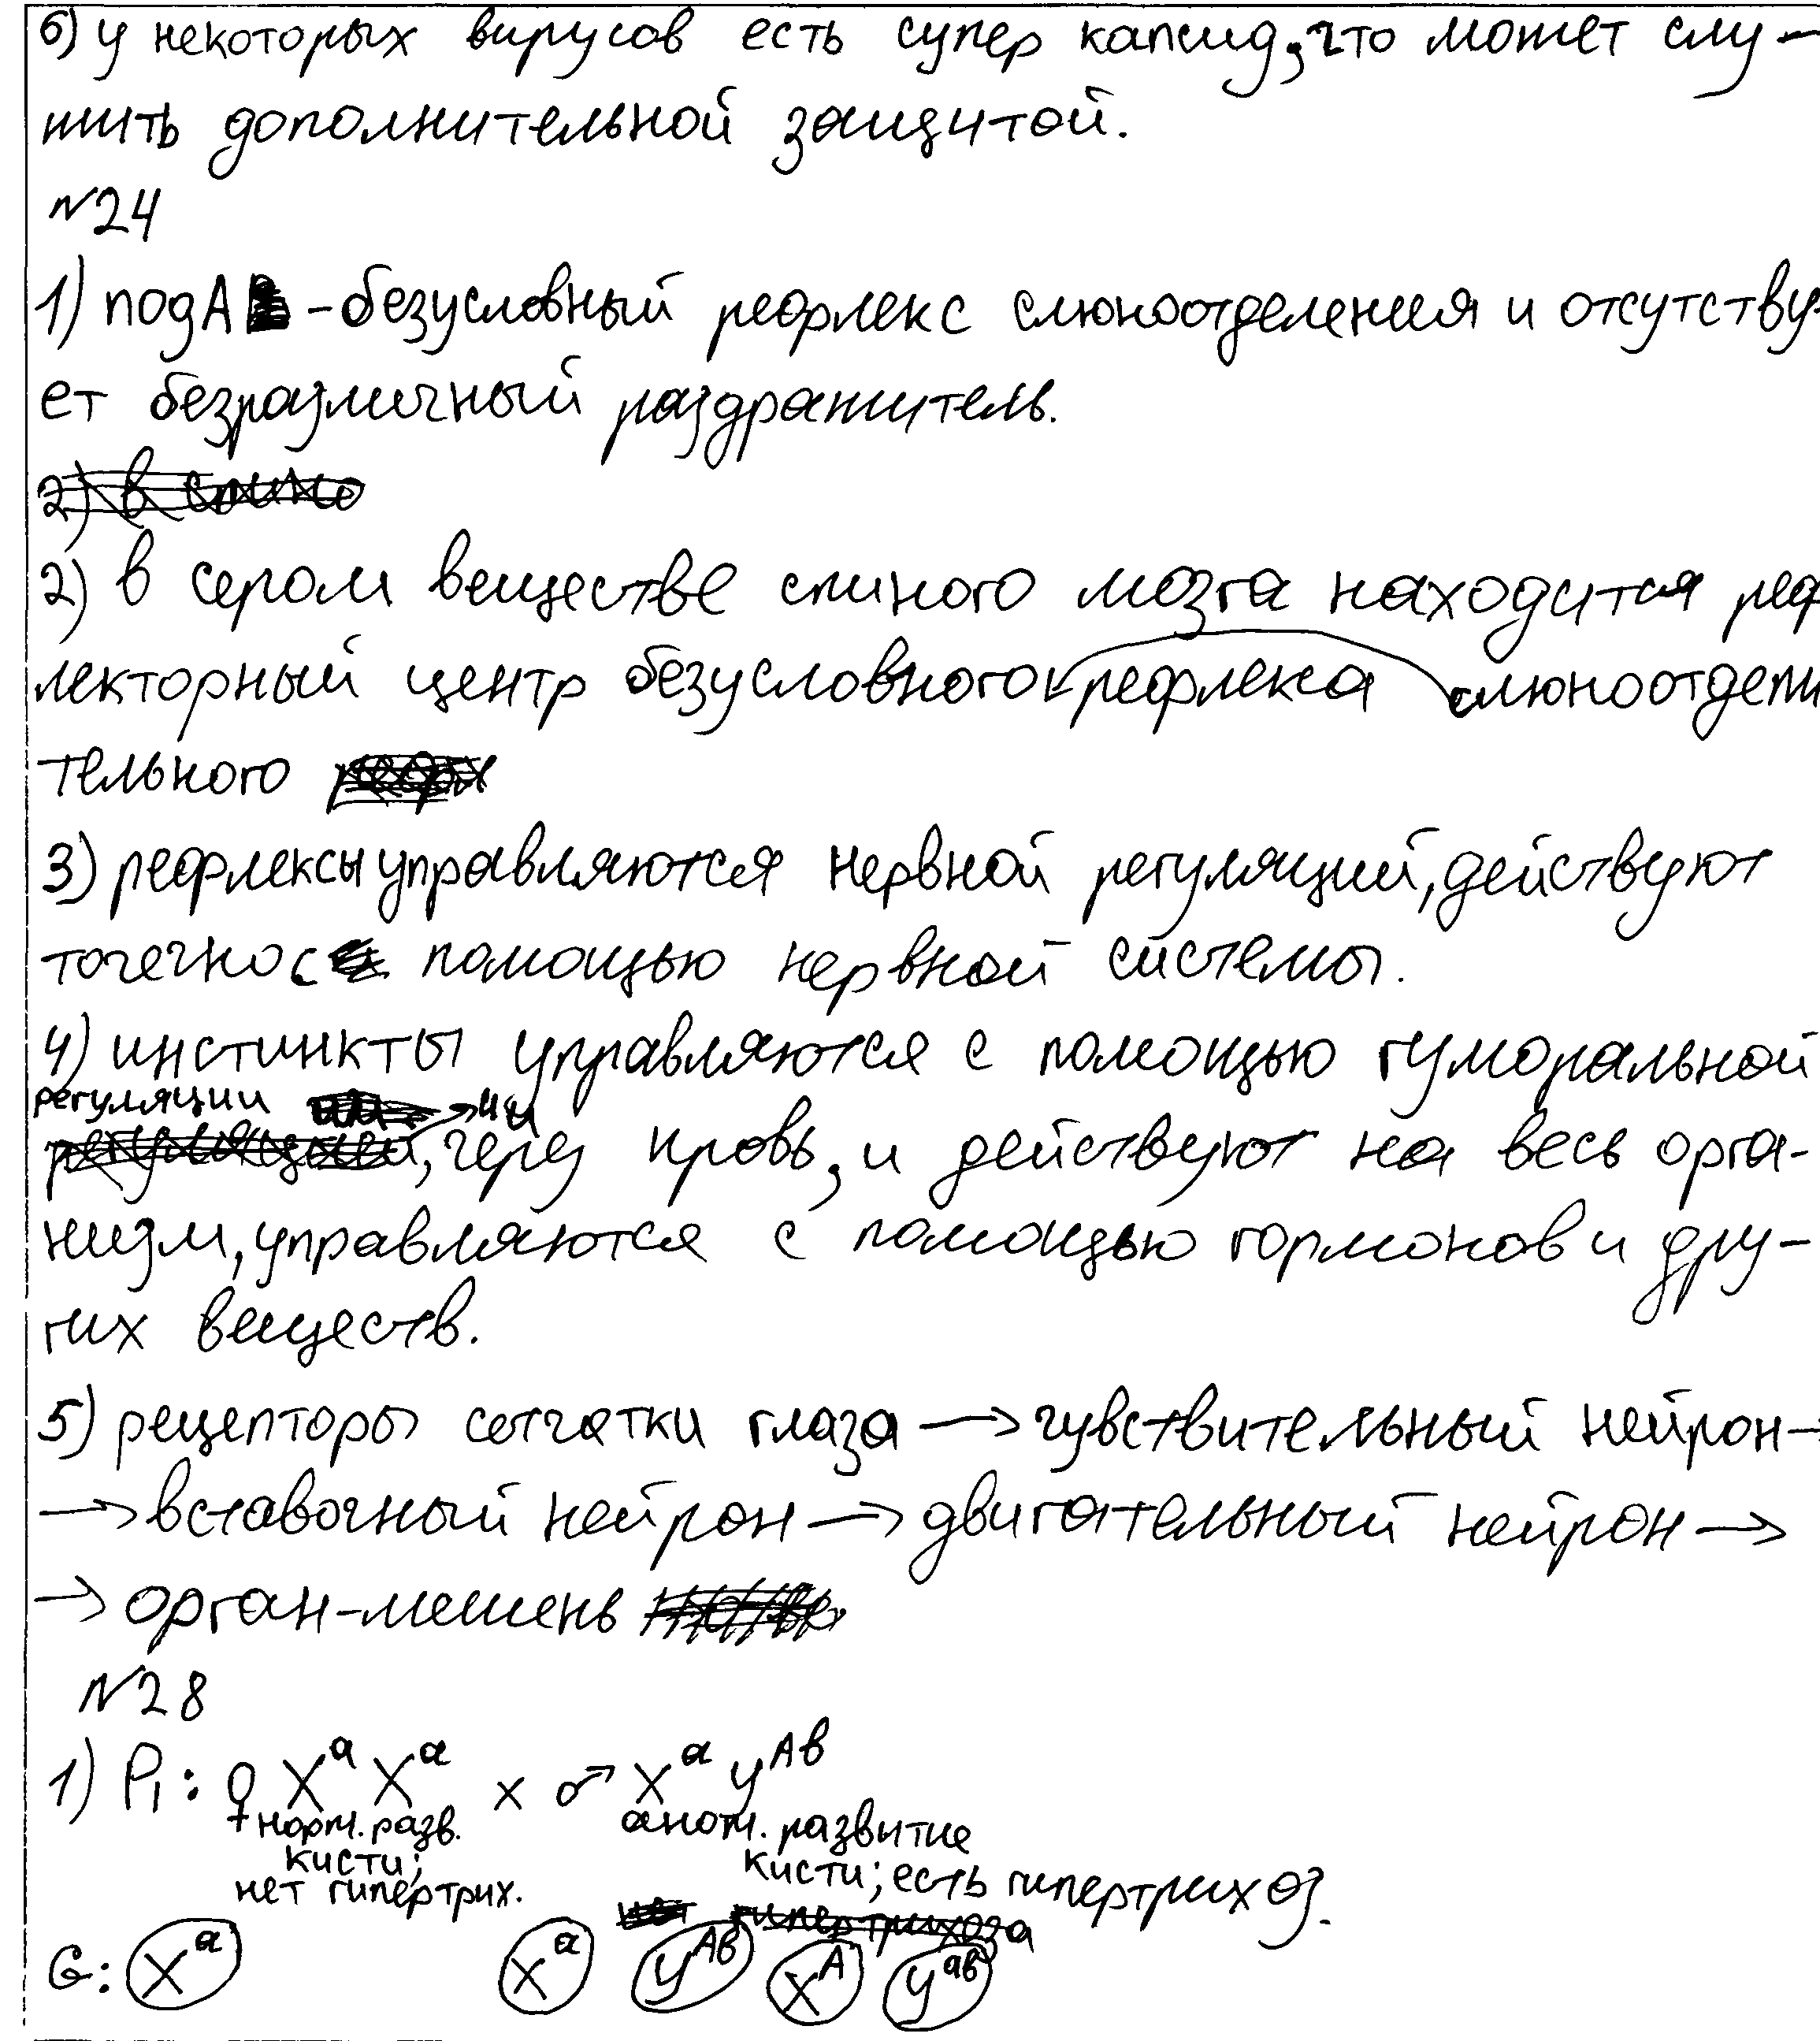 6) у некоторых вирусов есть супер капсид, что может слу-
жить дополнительной защитой.
№24
1) под А - безусловный рефлекс слюноотделения и отсутству-
ет безразличный раздражитель.
2) в спино
2) в сером веществе спиного мозга находится реф
лекторный центр безусловного рефлекса слюноотдели
тельного
3) рефлексы управляются нервной регуляций, действуют
точечно с помощью нервной системы.
4) инстинкты управляются с помощью гуморальной
регуляции
, через кровь, и действуют на весь орга-
низм, управляются с помощью гормонов и дру-
гих веществ.
5) рецепторы сетчатки глаза → чувствительный нейрон →
→ вставочный нейрон → двигательный нейрон →
→ орган-мешень
№28
1) P₁: ♀ XᵃXᵃ x ♂ Xᵃ Yᴬᴮ
норм. разв. аном. развитие
кисти; кисти; есть гипертрихоз.
нет гипертрих.
нет гипертрихоза
G: Xᵃ Xᵃ Yᴬᴮ Xᴬ Yᵃᴮ